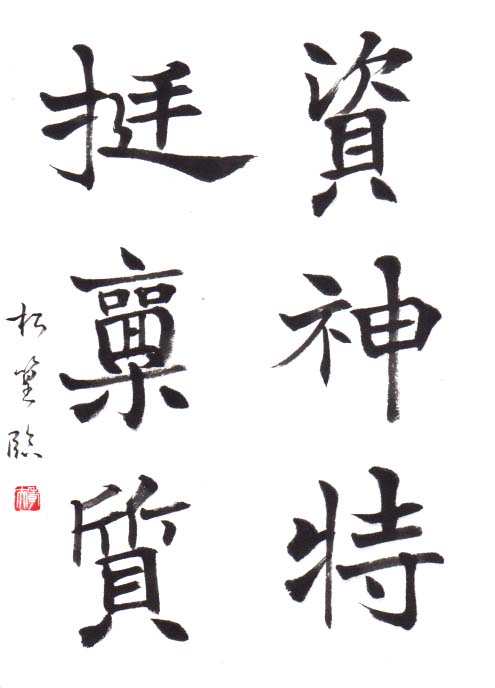 資神特
挺稟質
松篁臨